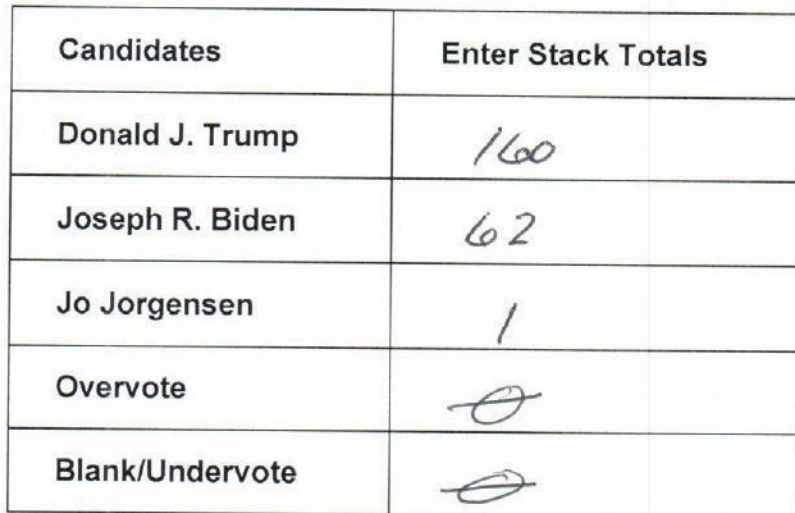 Candidates Enter Stack Totals
Donald J. Trump 160
Joseph R. Biden 62
Jo Jorgensen 1
Overvote 0
Blank/Undervote 0